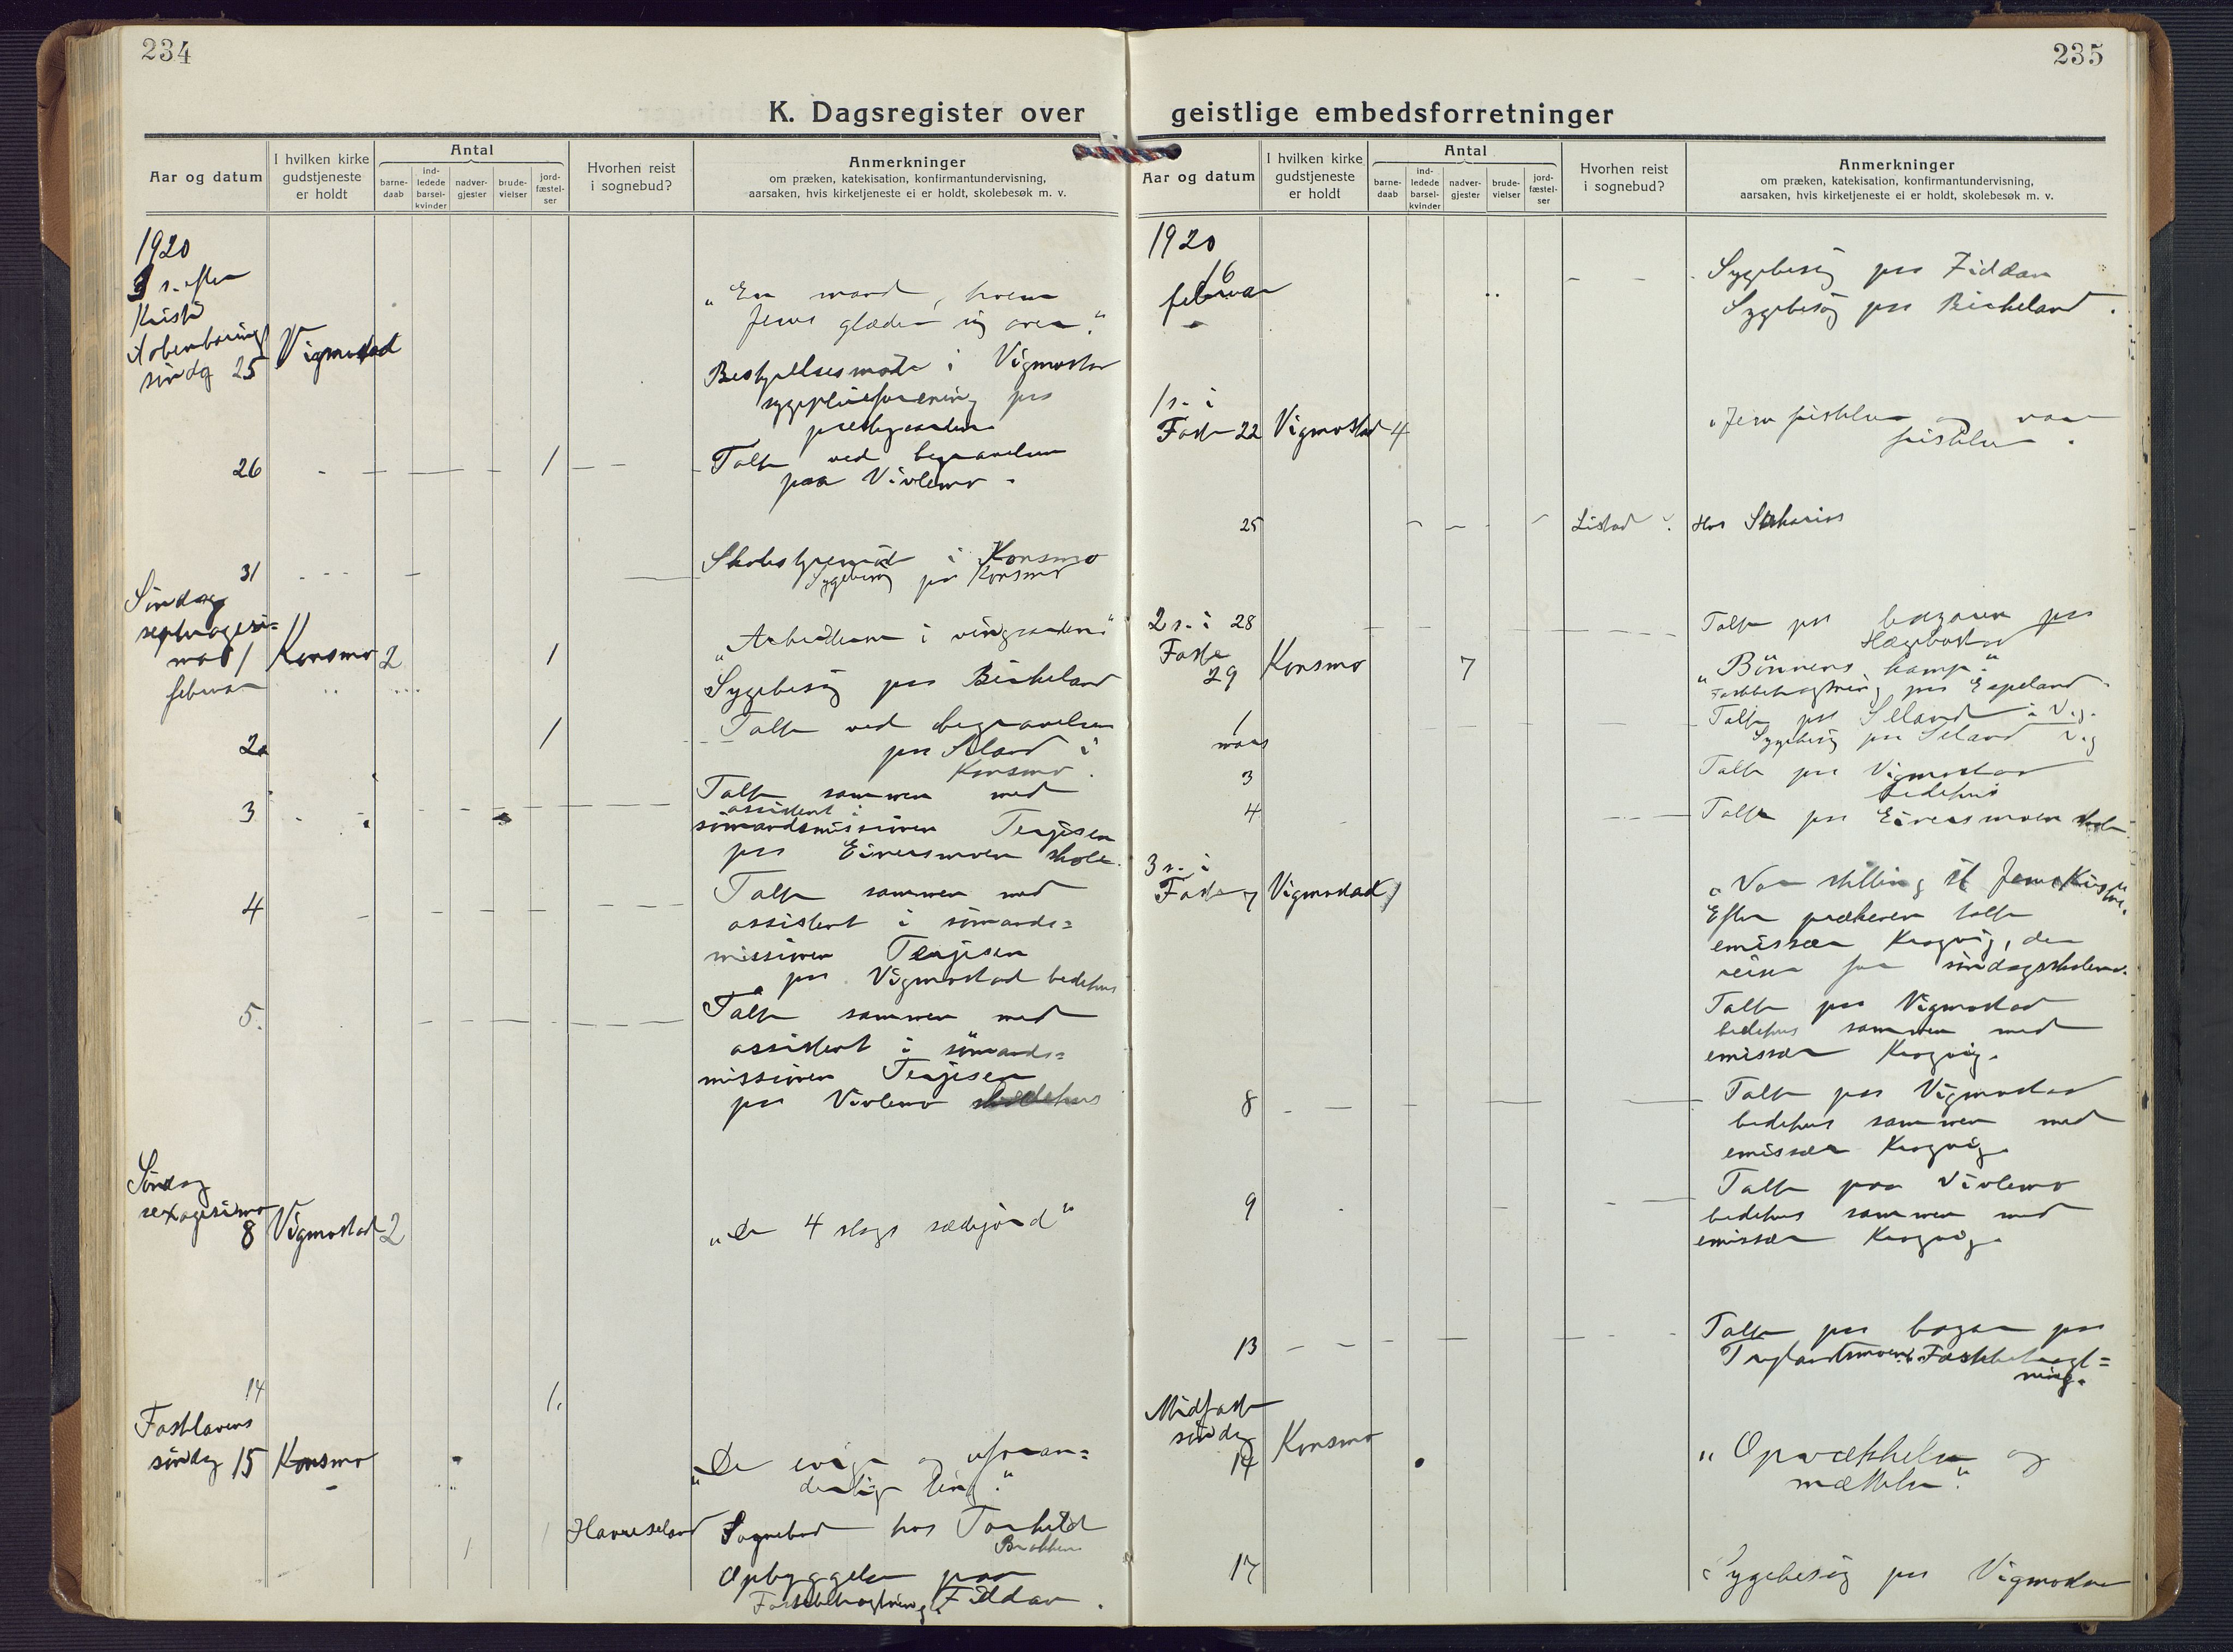 234
K. Dagsregister over
Aar og datum
I hvilken kirke
gudstjeneste
er holdt
Antal
barne-
daab
ind-
ledede
barsel-
kvinder
nadver-
gjester
brude-
vielser
jord-
fæstel-
ser
Hvorhen reist
i sognebud?
Anmerkninger
om præken, katekisation, konfirmantundervisning,
aarsaken, hvis kirketjeneste ei er holdt, skolebesøk m. v.
1920
3 s. efter
Kristi
aabenbarings
søndag 25 Vigmostad
„En mand, hvem
Jesus glæder sig over."
Bestyrelsesmøte i Vigmostad
sygepleieforening paa
prestegaarden
26 1 Talte ved begravelsen
paa Vivlemo.
31 Skolestyremøte i Konsmo
Sygebesøg paa Konsmo
Søndag
septuagesi=
ma 1 Konsmo 2 1 „Arbeiderne i vingaarden"
februar Sygebesøg paa Birkeland
2 1 Talte ved begravelsen
paa Seland i
Konsmo.
3 Talte sammen med
assistent i
sømandsmissionen Terjesen
paa Eiversmoen skole.
4 Talte sammen med
assistent i sømands=
missionen Terjesen
paa Vigmostad bedehus
5. Talte sammen med
assistent i sømands=
missionen Terjesen
paa Vivlemo bedehus
Søndag
sexagesima
8 Vigmostad 2 „De 4 slags sædejord"
14 1.
Fastelavens
søndag 15 Konsmo „De evige og uforan=
derlige ting."
1 Haveseland Sognebud hos Torhild
Brakken
Opbyggelse paa
Fastebetragtning Fiddan.
235
geistlige embedsforretninger
Aar og datum
I hvilken kirke
gudstjeneste
er holdt
Antal
barne-
daab
ind-
ledede
barsel-
kvinder
nadver-
gjester
brude-
vielser
jord-
fæstel-
ser
Hvorhen reist
i sognebud?
Anmerkninger
om præken, katekisation, konfirmantundervisning,
aarsaken, hvis kirketjeneste ei er holdt, skolebesøk m. v.
1920
16
februar
Sygebesøg paa Fiddan
Sygebesøg paa Birkeland.
1 s. i
Faste 22 Vigmostad 4 „Jesu fristelse og vor
fristelse.
25 Listad Hos
2 s. i 28 Talte paa bazaren paa
Hægebostad
Faste
29 Konsmo 7 „Bønnens kamp."
Fastebetragtning paa Espeland.
1
mars
Talte paa Seland i Vig.
Sygebesøg paa Seland Vig
3 Talte paa Vigmostad
bedehus
4 Talte paa Eiversmoen skole.
3 s. i
Faste 7 Vigmostad 1 „Vor stilling til Jesus Kristus."
Efter prækenen talte
emissær Krogvig, der
reiser for søndagsskolerne.
Talte paa Vigmostad
bedehus sammen med
emissær Krogvig.
8 Talte paa Vigmostad
bedehus sammen med
emissær Krogvig.
9 Talte paa Vivlemo
bedehus sammen med
emissær Krogvig.
13 Talte paa bazar paa
Fastebetragt=
ning.
Midfaste
søndag
14 Konsmo „Opvækkelse og
mættelse."
17 Sygebesøg paa Vigmostad